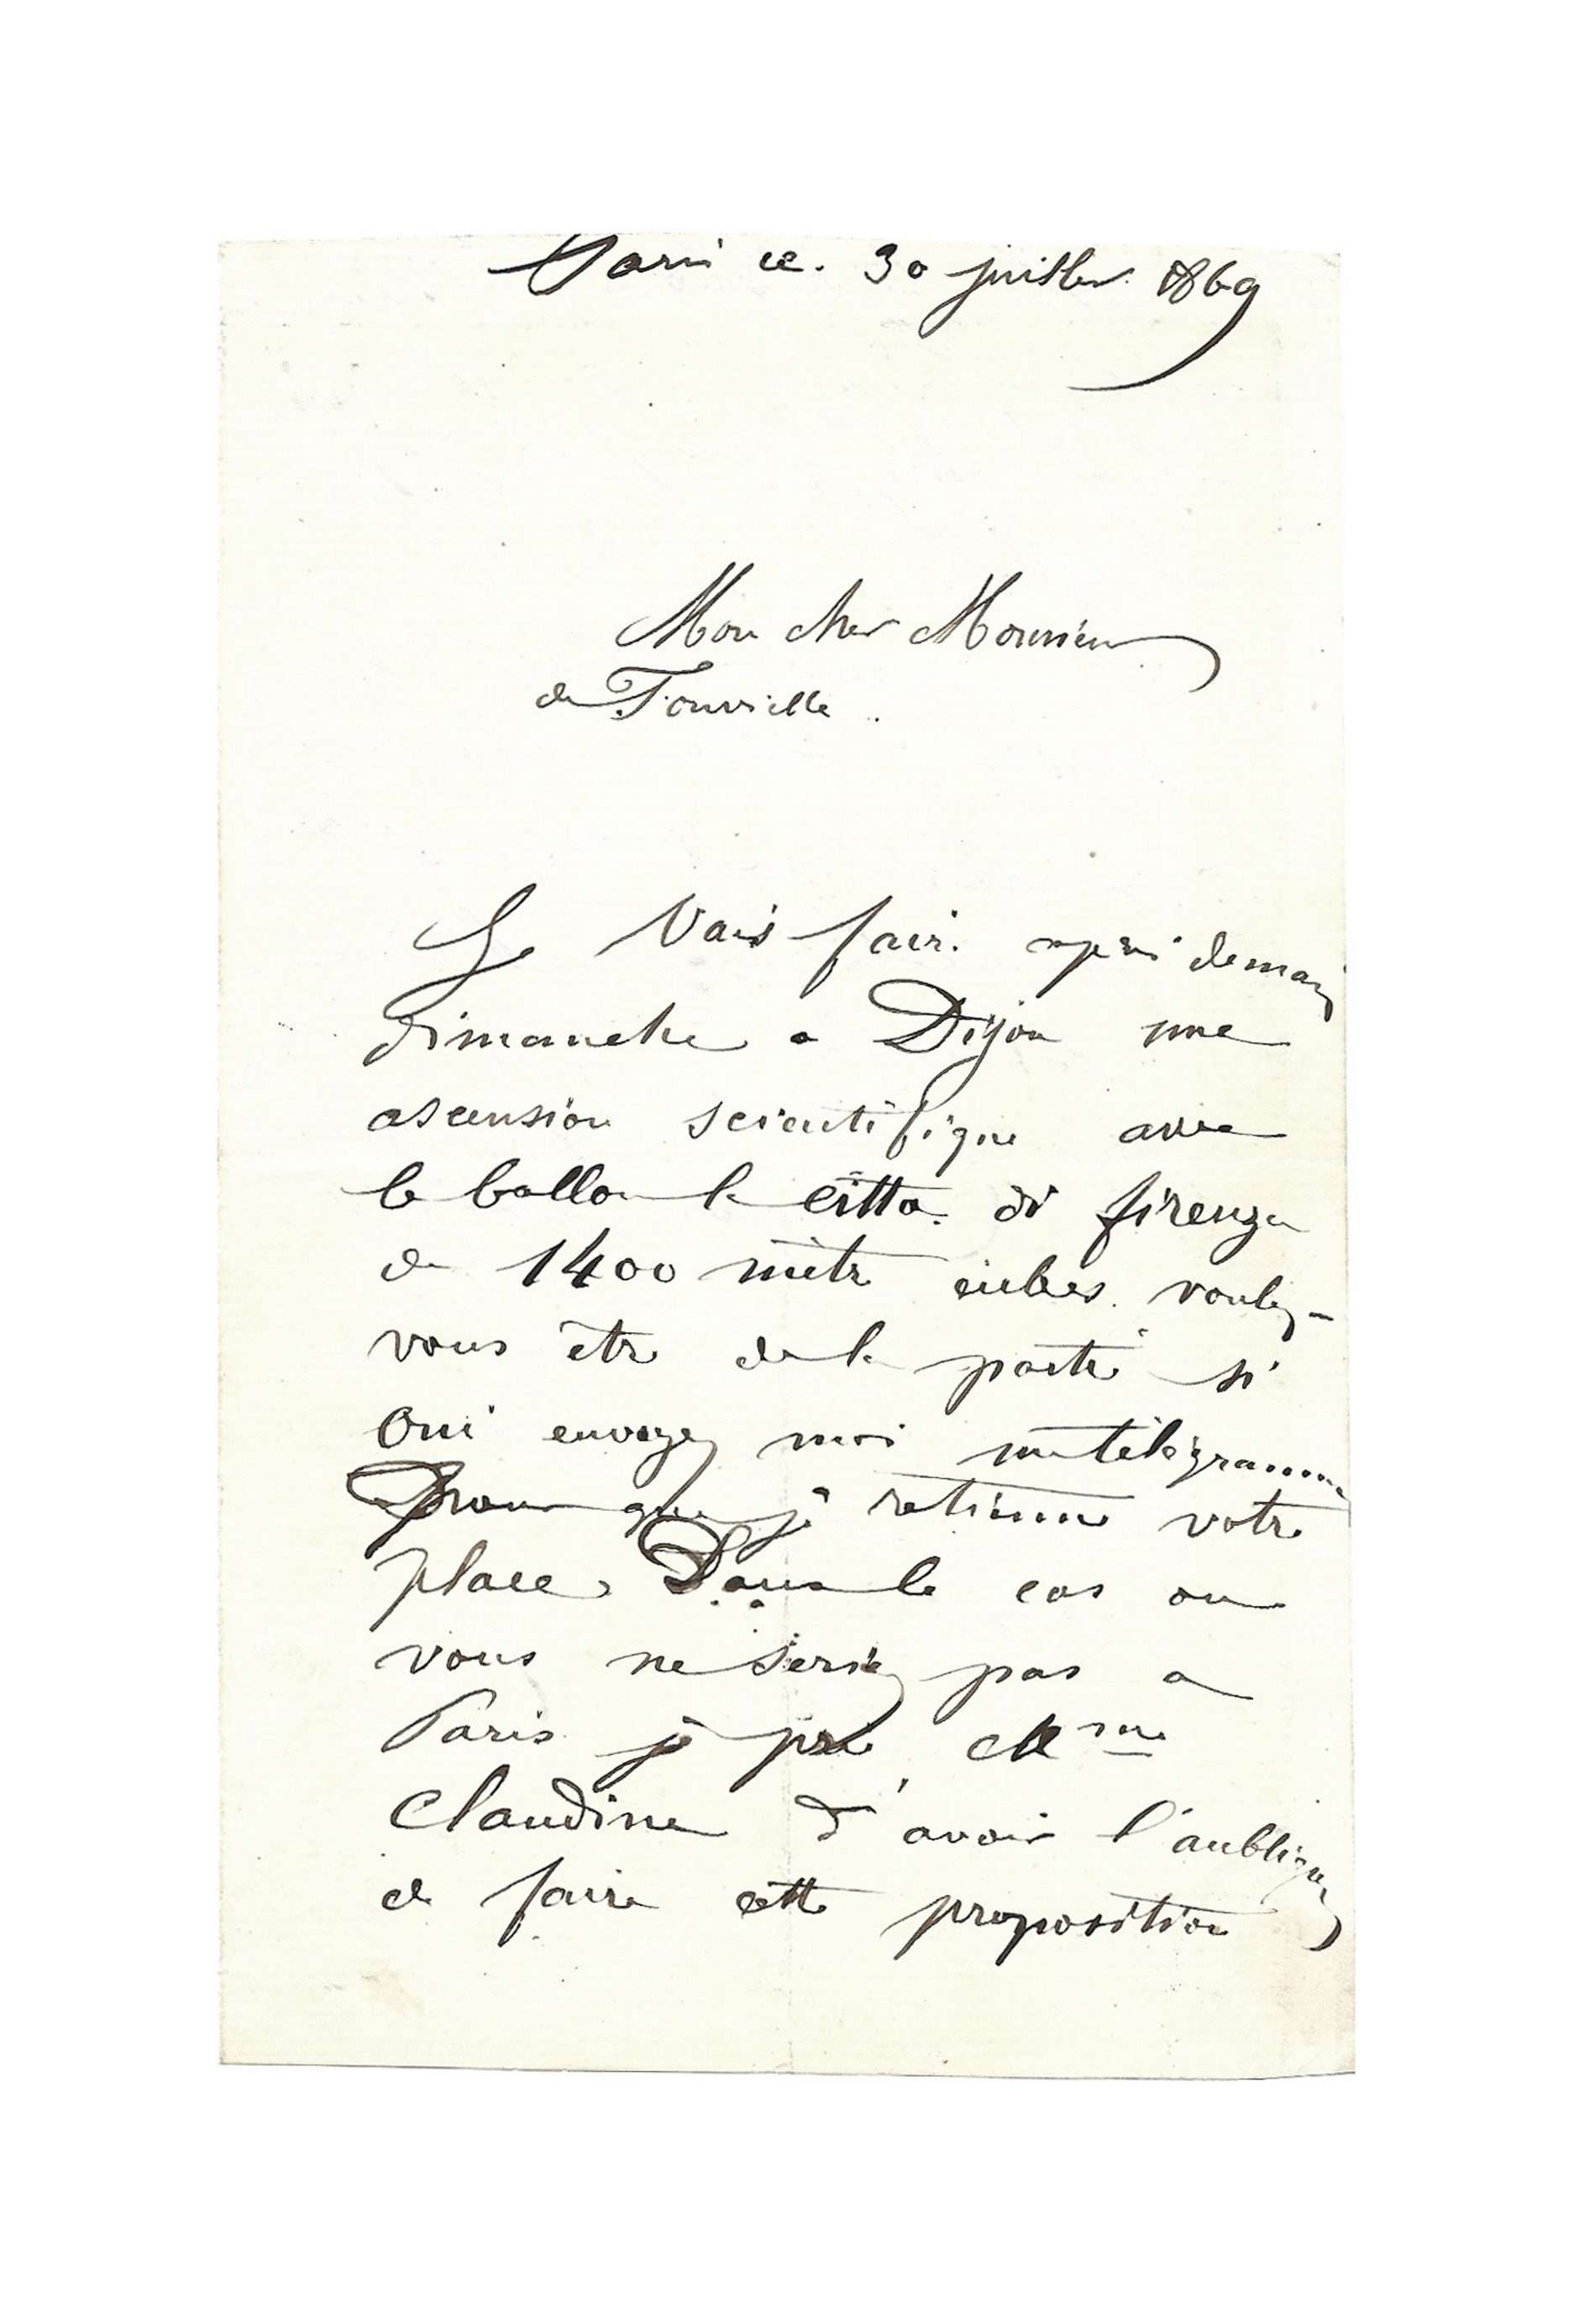 Paris ce. 30 juillet 1869
Mon cher Monsieur
de Fonvielle.
Je Vais faire après demain
dimanche a Dijon une
ascension scientifique avec
le ballon le Citta di firenze
de 1400 mètre cubes. voulez-
vous être de la partie si
Oui envoyez moi un télégramme
Pour que je retienne votre
place Dans le cas ou
vous ne seriez pas a
Paris je prie Mme
Claudine d'avoir l'
de faire cette proposition